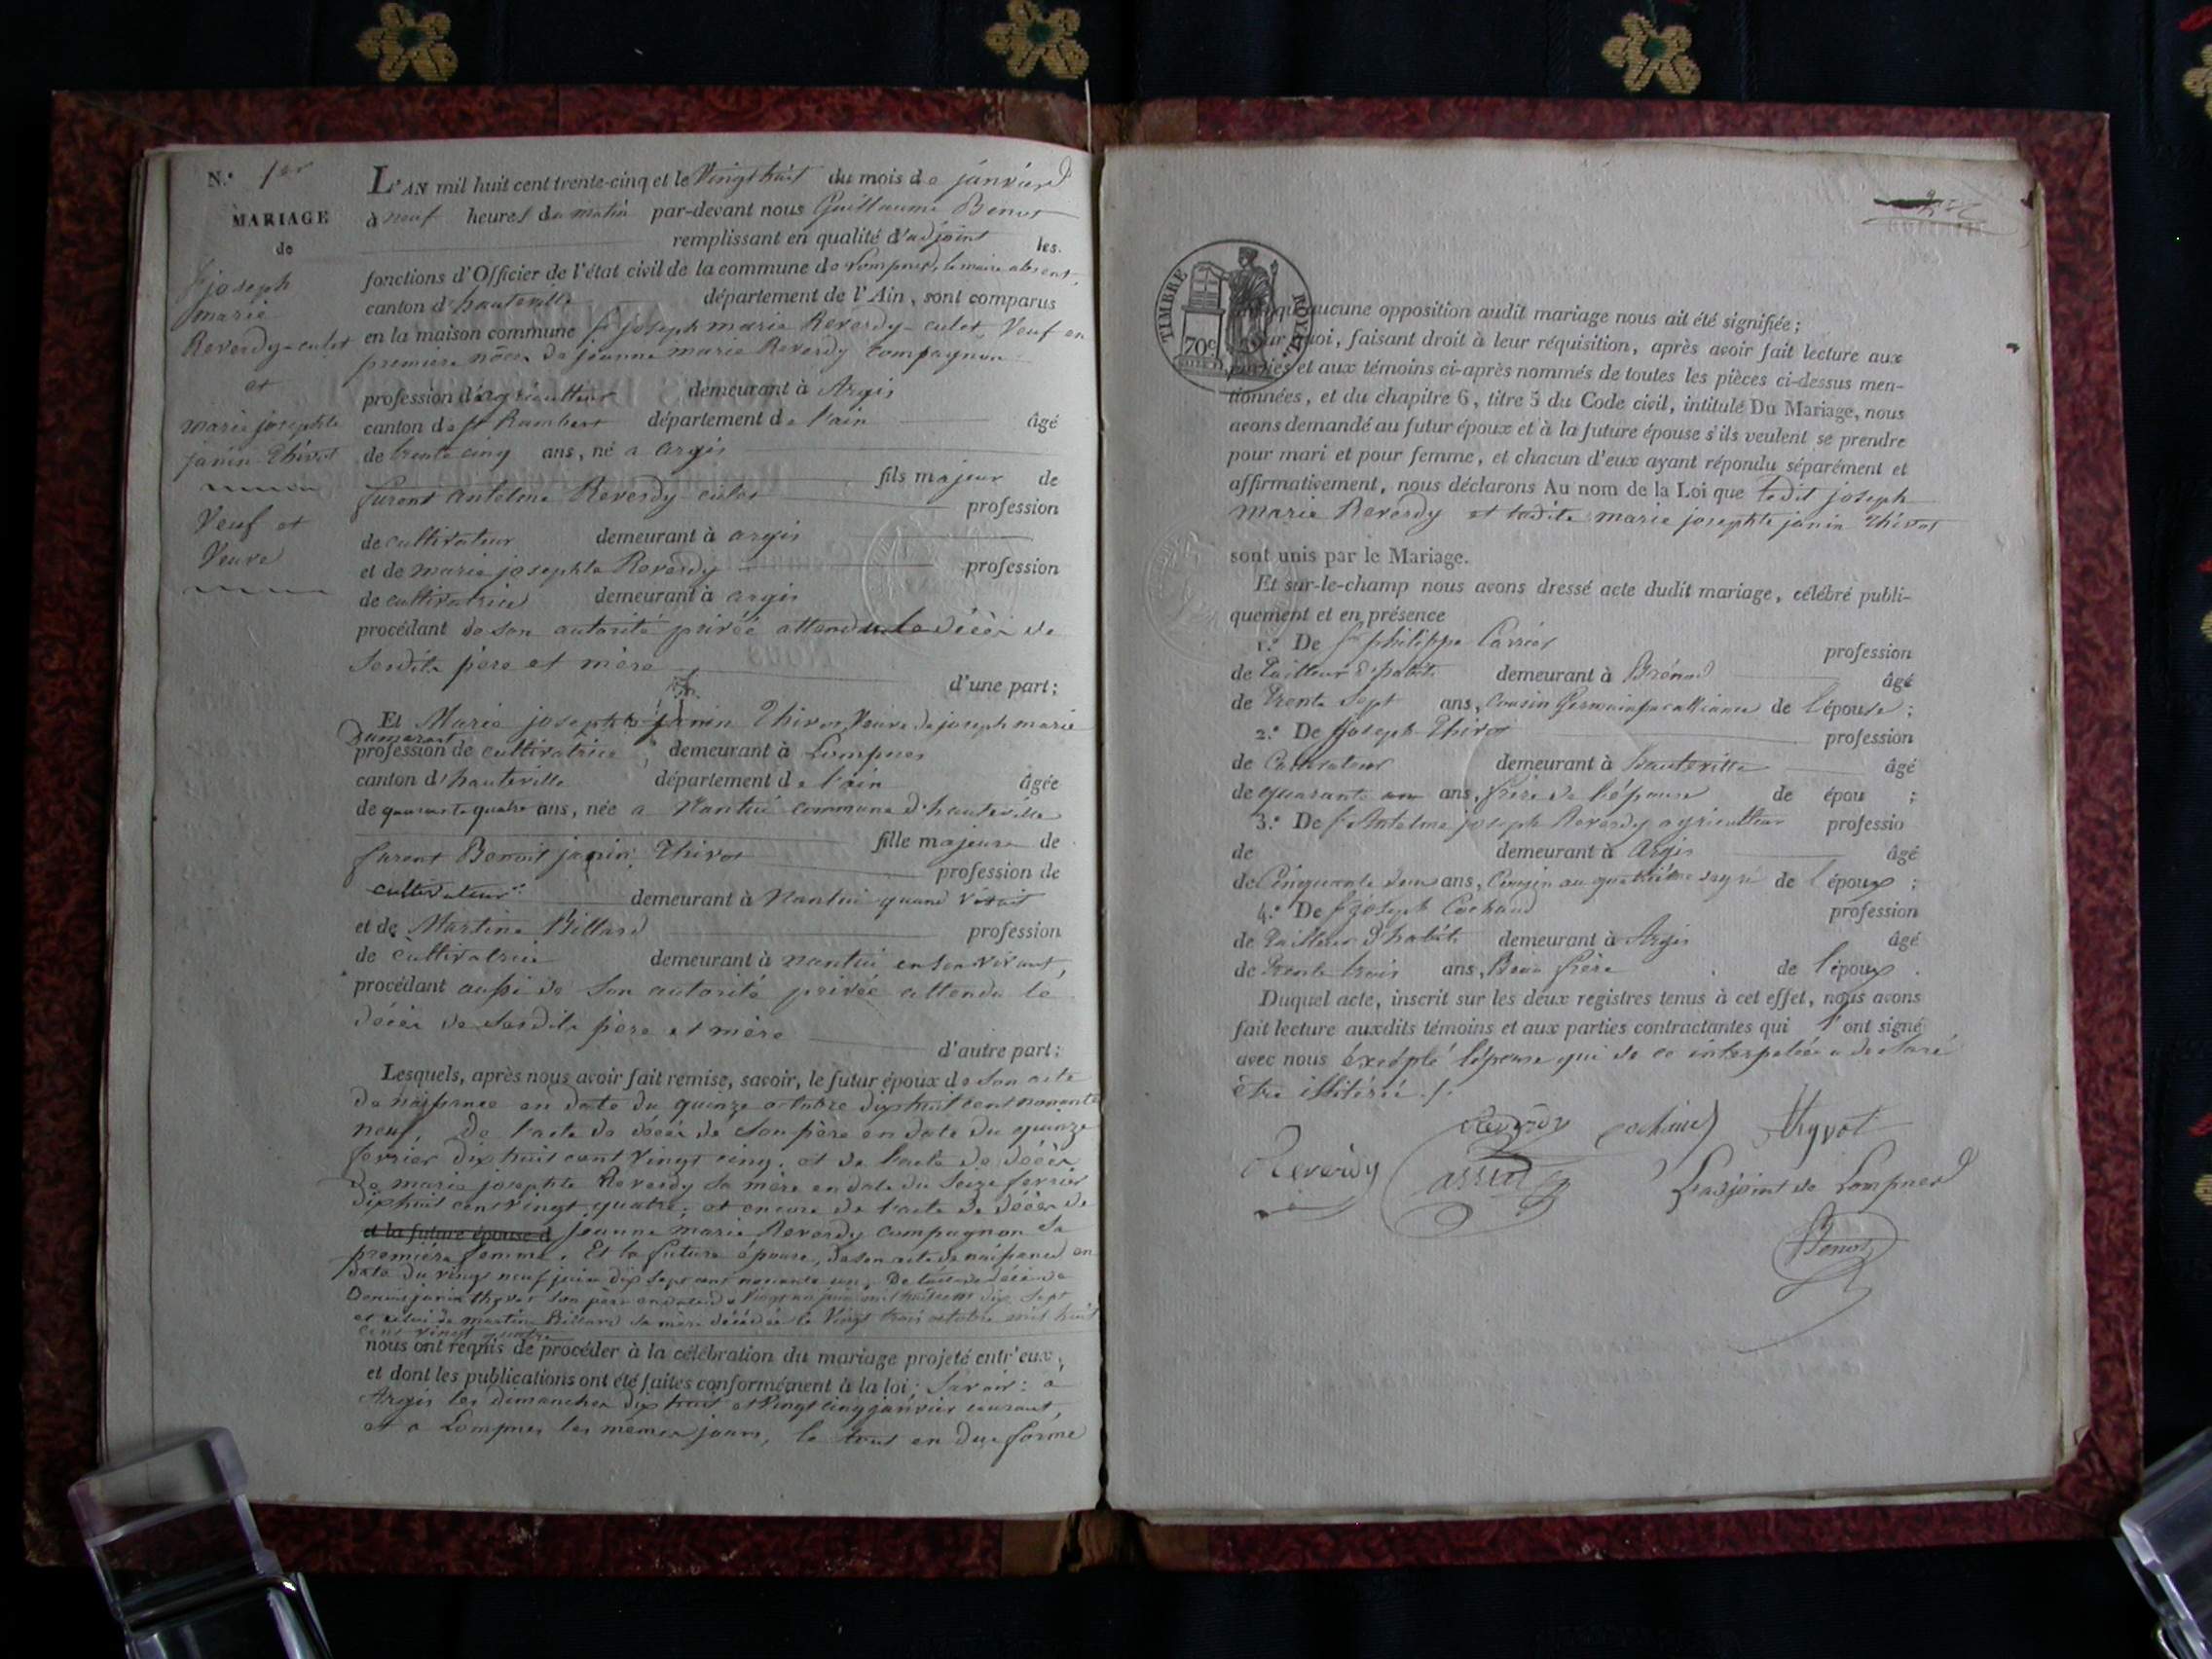 N.° 1er
MARIAGE
de
Sr joseph
marie
Reverdy-culet
et
marie josephte
janin-Thivot
Veuf et
Veuve
L'AN mil huit cent trente-cinq et le Vingt huit du mois de janvier
à neuf heures du matin par-devant nous Guillaume Benot
remplissant en qualité d'adjoint les
fonctions d'Officier de l'état civil de la commune de Lompnes, le maire absent,
canton d'hauteville département de l'Ain, sont comparus
en la maison commune Sr joseph marie Reverdy-culet, Veuf en
premiere nôces de jeanne marie Reverdy Compagnon
profession d'agriculteur demeurant à Argis
canton de St Rambert département de l'ain âgé
de trente cinq ans, né a argis
fils majeur de
furent antelme Reverdy culet
profession
de cultivateur demeurant à argis
et de marie josephte Reverdy profession
de cultivatrice demeurant à argis
procédant de son autorité privée attendu le décès de
sesdits père et mère
d'une part;
Et Marie josephte janin Thivot, Veuve de joseph marie
Dumarest
profession de cultivatrice, demeurant à Lompnes
canton d'hauteville département de l'ain âgée
de quarante quatre ans, née a Nantui commune d'hauteville
fille majeure de
furent Benoit janin Thivot
profession de
cultivateur demeurant à Nantui quand vivait
et de Martine Billard profession
de cultivatrice demeurant à nantui en son vivant,
procédant aussi de son autorité privée attendu le
décès de sesdits père et mère
d'autre part:
Lesquels, après nous avoir fait remise, savoir, le futur époux de son acte
de naissance en date du quinze octobre dix huit cent nonante
neuf, de l'acte de décès de son père en date du quinze
fevrier dix huit cent vingt cinq, et de l'acte de décès
de marie josephte Reverdy sa mère en date du seize fevrier
dix huit cent vingt quatre; et encore de l'acte de décès de
et la future épouse d jeanne marie Reverdy compagnon sa
première femme. Et la future épouse, de son acte de naissance en
date du vingt neuf juin dix sept cent nonante un, de l'acte de décès de
Benoit janin thyvot son père en date du vingt un juin mil huit cent dix sept
et celui de martine Billard sa mère décédée le Vingt trois octobre mil huit
cent vingt quatre
nous ont requis de procéder à la célébration du mariage projeté entr'eux,
et dont les publications ont été faites conformément à la loi; savoir: a
Argis les dimanches dix huit et vingt cinq janvier courant,
et a Lompnes les mêmes jours, le tout en due forme
TIMBRE ROYAL
70c
qu'aucune opposition audit mariage nous ait été signifiée;
Sur quoi, faisant droit à leur réquisition, après avoir fait lecture aux
parties et aux témoins ci-après nommés de toutes les pièces ci-dessus men-
tionnées, et du chapitre 6, titre 5 du Code civil, intitulé Du Mariage, nous
avons demandé au futur époux et à la future épouse s'ils veulent se prendre
pour mari et pour femme, et chacun d'eux ayant répondu séparément et
affirmativement, nous déclarons Au nom de la Loi que ledit joseph
marie Reverdy et ladite marie josephte janin Thivot
sont unis par le Mariage.
Et sur-le-champ nous avons dressé acte dudit mariage, célébré publi-
quement et en présence
1.° De Sr philippe Carrier
profession
de tailleur d'habits demeurant à Brénod âgé
de Trente sept ans, cousin Germain par alliance de l'épouse;
2.° De Sr joseph Thivot profession
de Cultivateur demeurant à hauteville âgé
de quarante ans, frère de l'épouse de épou;
3.° De Sr Antelme joseph Reverdy agriculteur professio
de demeurant à Argis âgé
de Cinquante deux ans, Cousin au quatrième degré de l'époux;
4.° De Sr joseph Cochaud
profession
de Tailleur d'habits demeurant à Argis âgé
de Trente trois ans, Beau frère de l'époux.
Duquel acte, inscrit sur les deux registres tenus à cet effet, nous avons
fait lecture auxdits témoins et aux parties contractantes qui l'ont signé
avec nous éxcépté l'épouse qui de ce interpelée a declaré
être illitérée ./.
Reverdy cochaud Thyvot
Reverdy L'adjoint de Lompnes
Benot